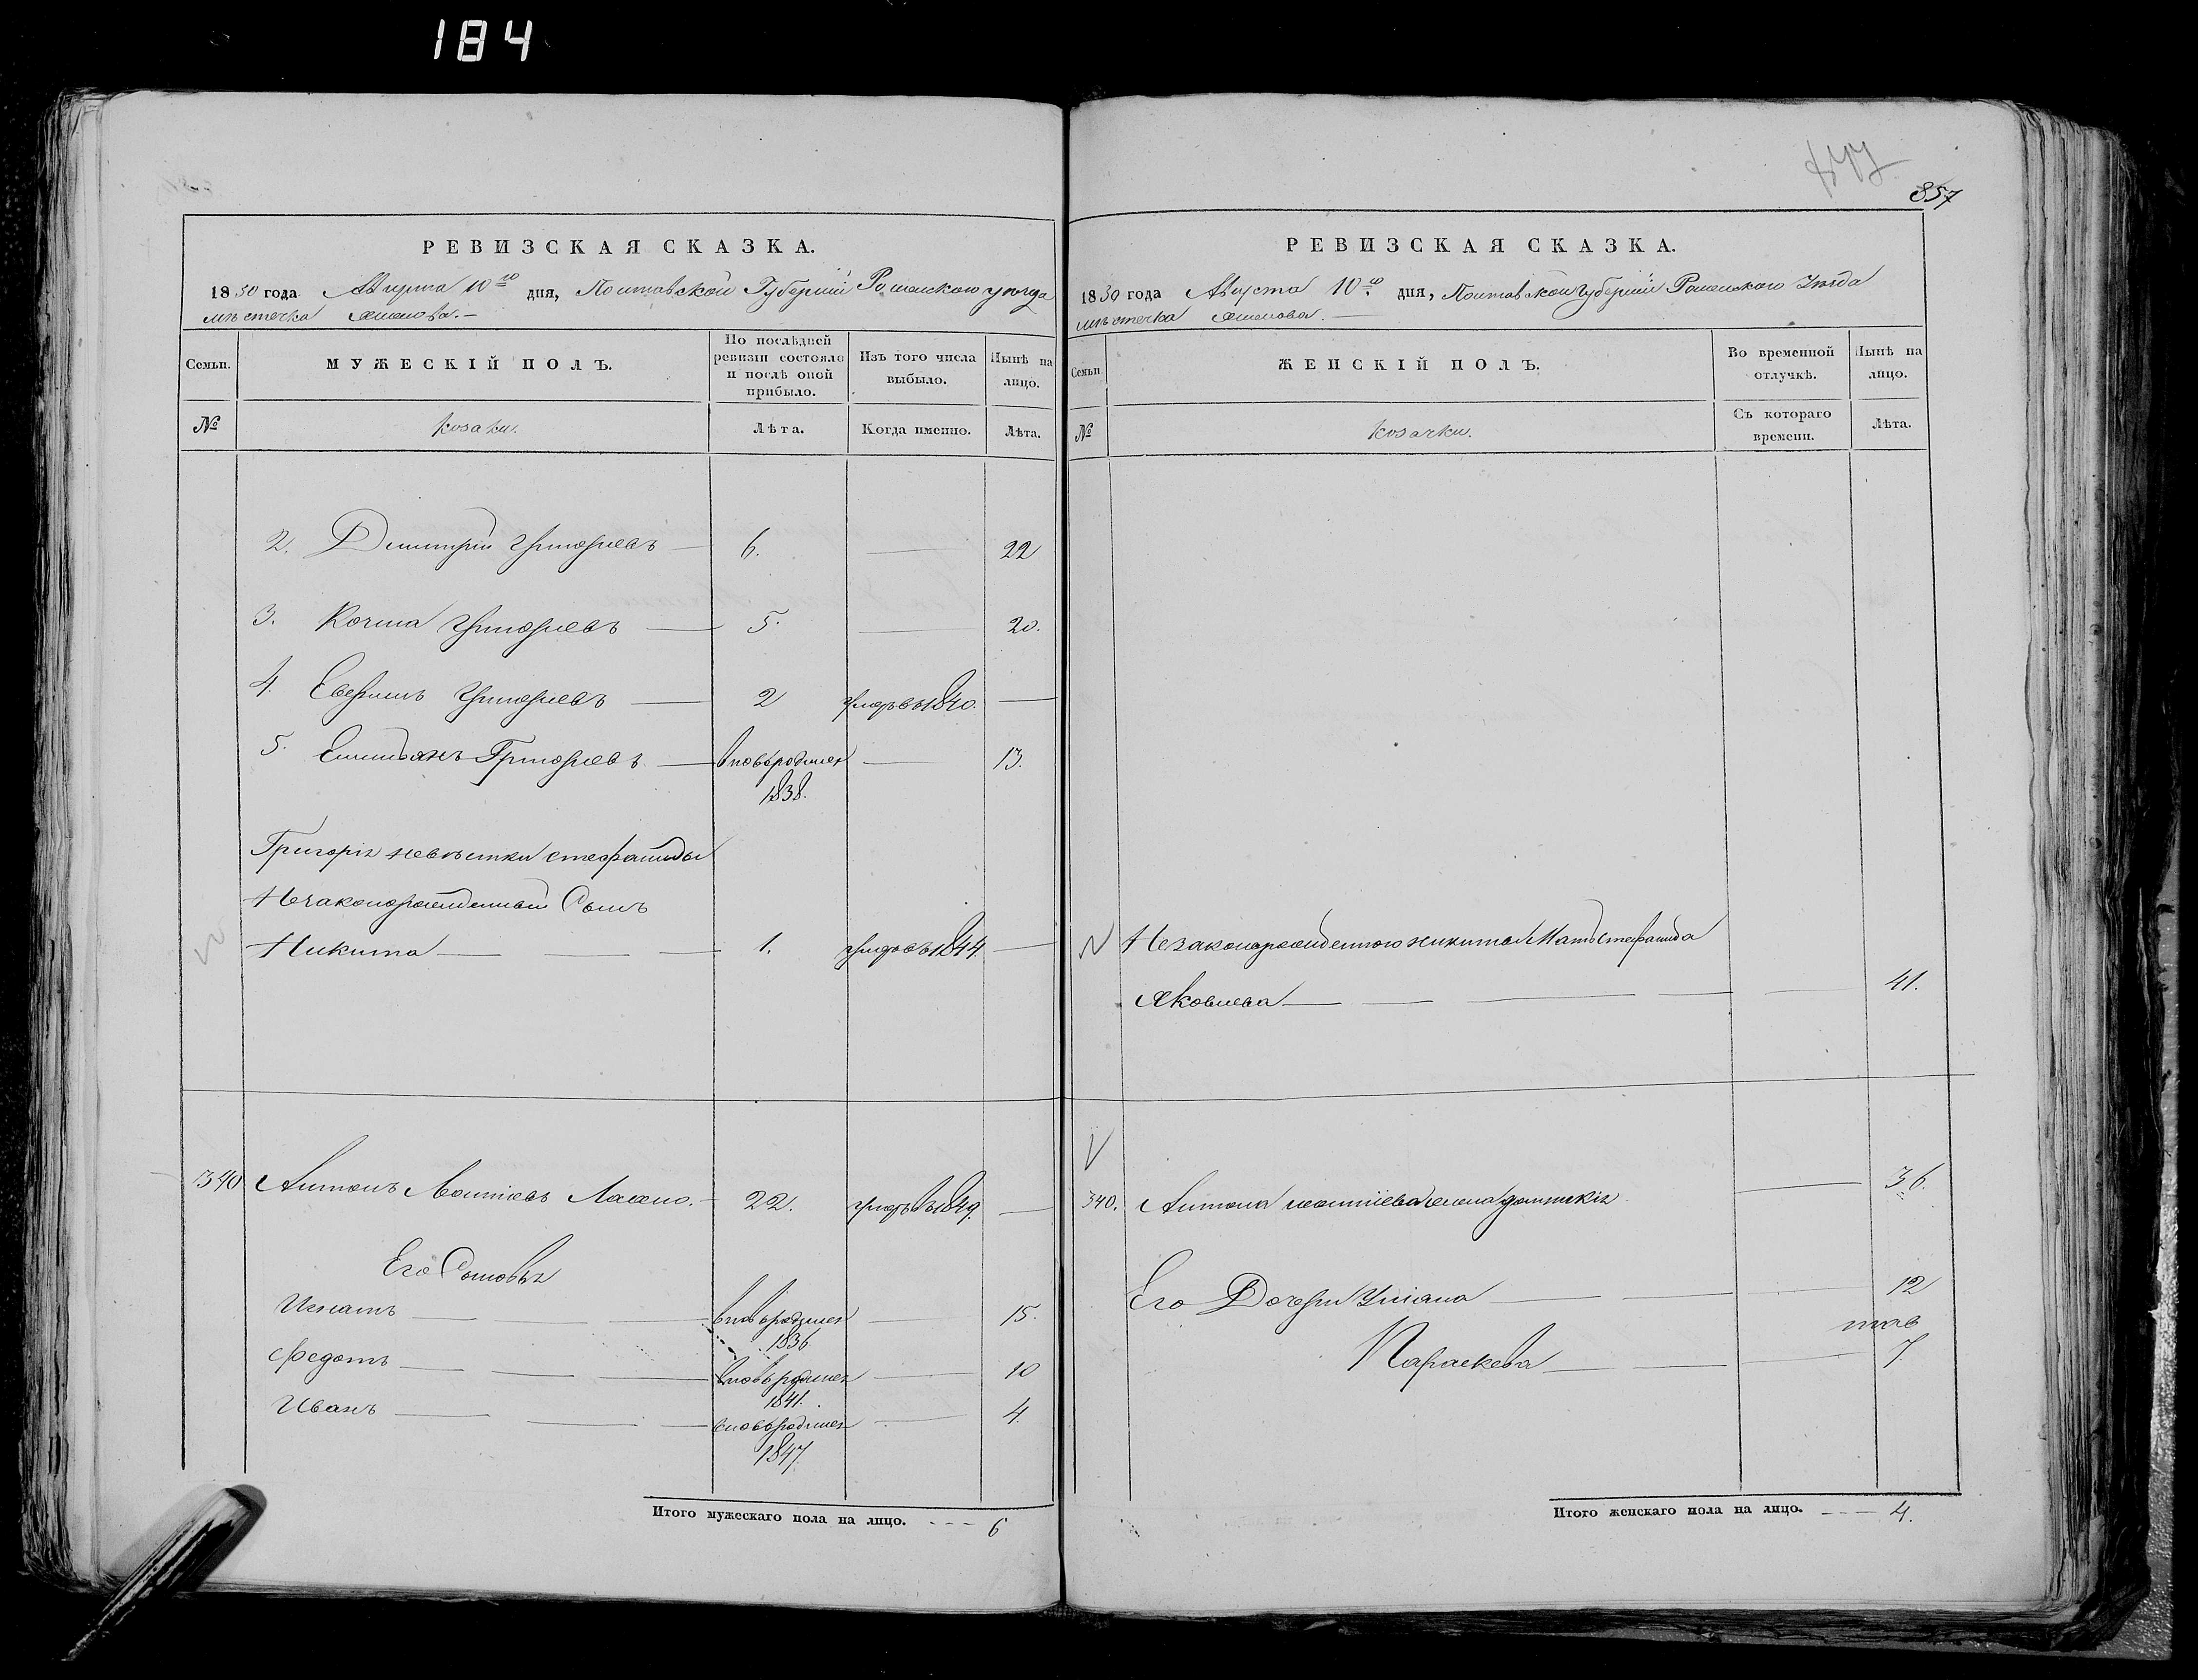 184
857
РЕВИЗСКАЯ СКАЗКА.
1850 года Августа 10го дня, Полтавской Губерніи Роменскаго уѣзда
мѣстечка
Семьи. МУЖЕСКІЙ ПОЛЪ. По послѣдней ревизіи состояло и послѣ оной прибыло. Изъ того числа выбыло. Нынѣ на лицо.
№ козаки. Лѣта. Когда именно. Лѣта.
2. Димитрій Григорьевъ 6. 22
3. Козма Григорьевъ 5. 20.
4. Григорьевъ 2 умеръ въ 1840.
5. Емельянъ Григорьевъ вновьрожден 13.
1838.
Григорія невѣстки Стефаниды
Незаконорожденный Сынъ
Никита 1. умеръ въ 1844.
340 Антонъ 22. умеръ въ 1849.
Его Сыновья
Игнатъ вновьрожден 15.
1836
Федотъ вновьрожден 10
1841.
Иванъ вновьрожден 4.
1847.
Итого мужескаго пола на лицо. 6
РЕВИЗСКАЯ СКАЗКА.
1850 года Августа 10го дня, Полтавской губерніи Роменскаго Уѣзда
мѣстечка
Семьи. ЖЕНСКІЙ ПОЛЪ. Во временной отлучкѣ. Нынѣ на лицо.
№ козачки. Съ котораго времени. Лѣта.
Незаконорожденнаго Никиты Мать Стефанида
Яковлева 41.
340. Антона жена 36.
Его Дочери Уліана 12
Параскева 7.
Итого женскаго пола на лицо. 4.